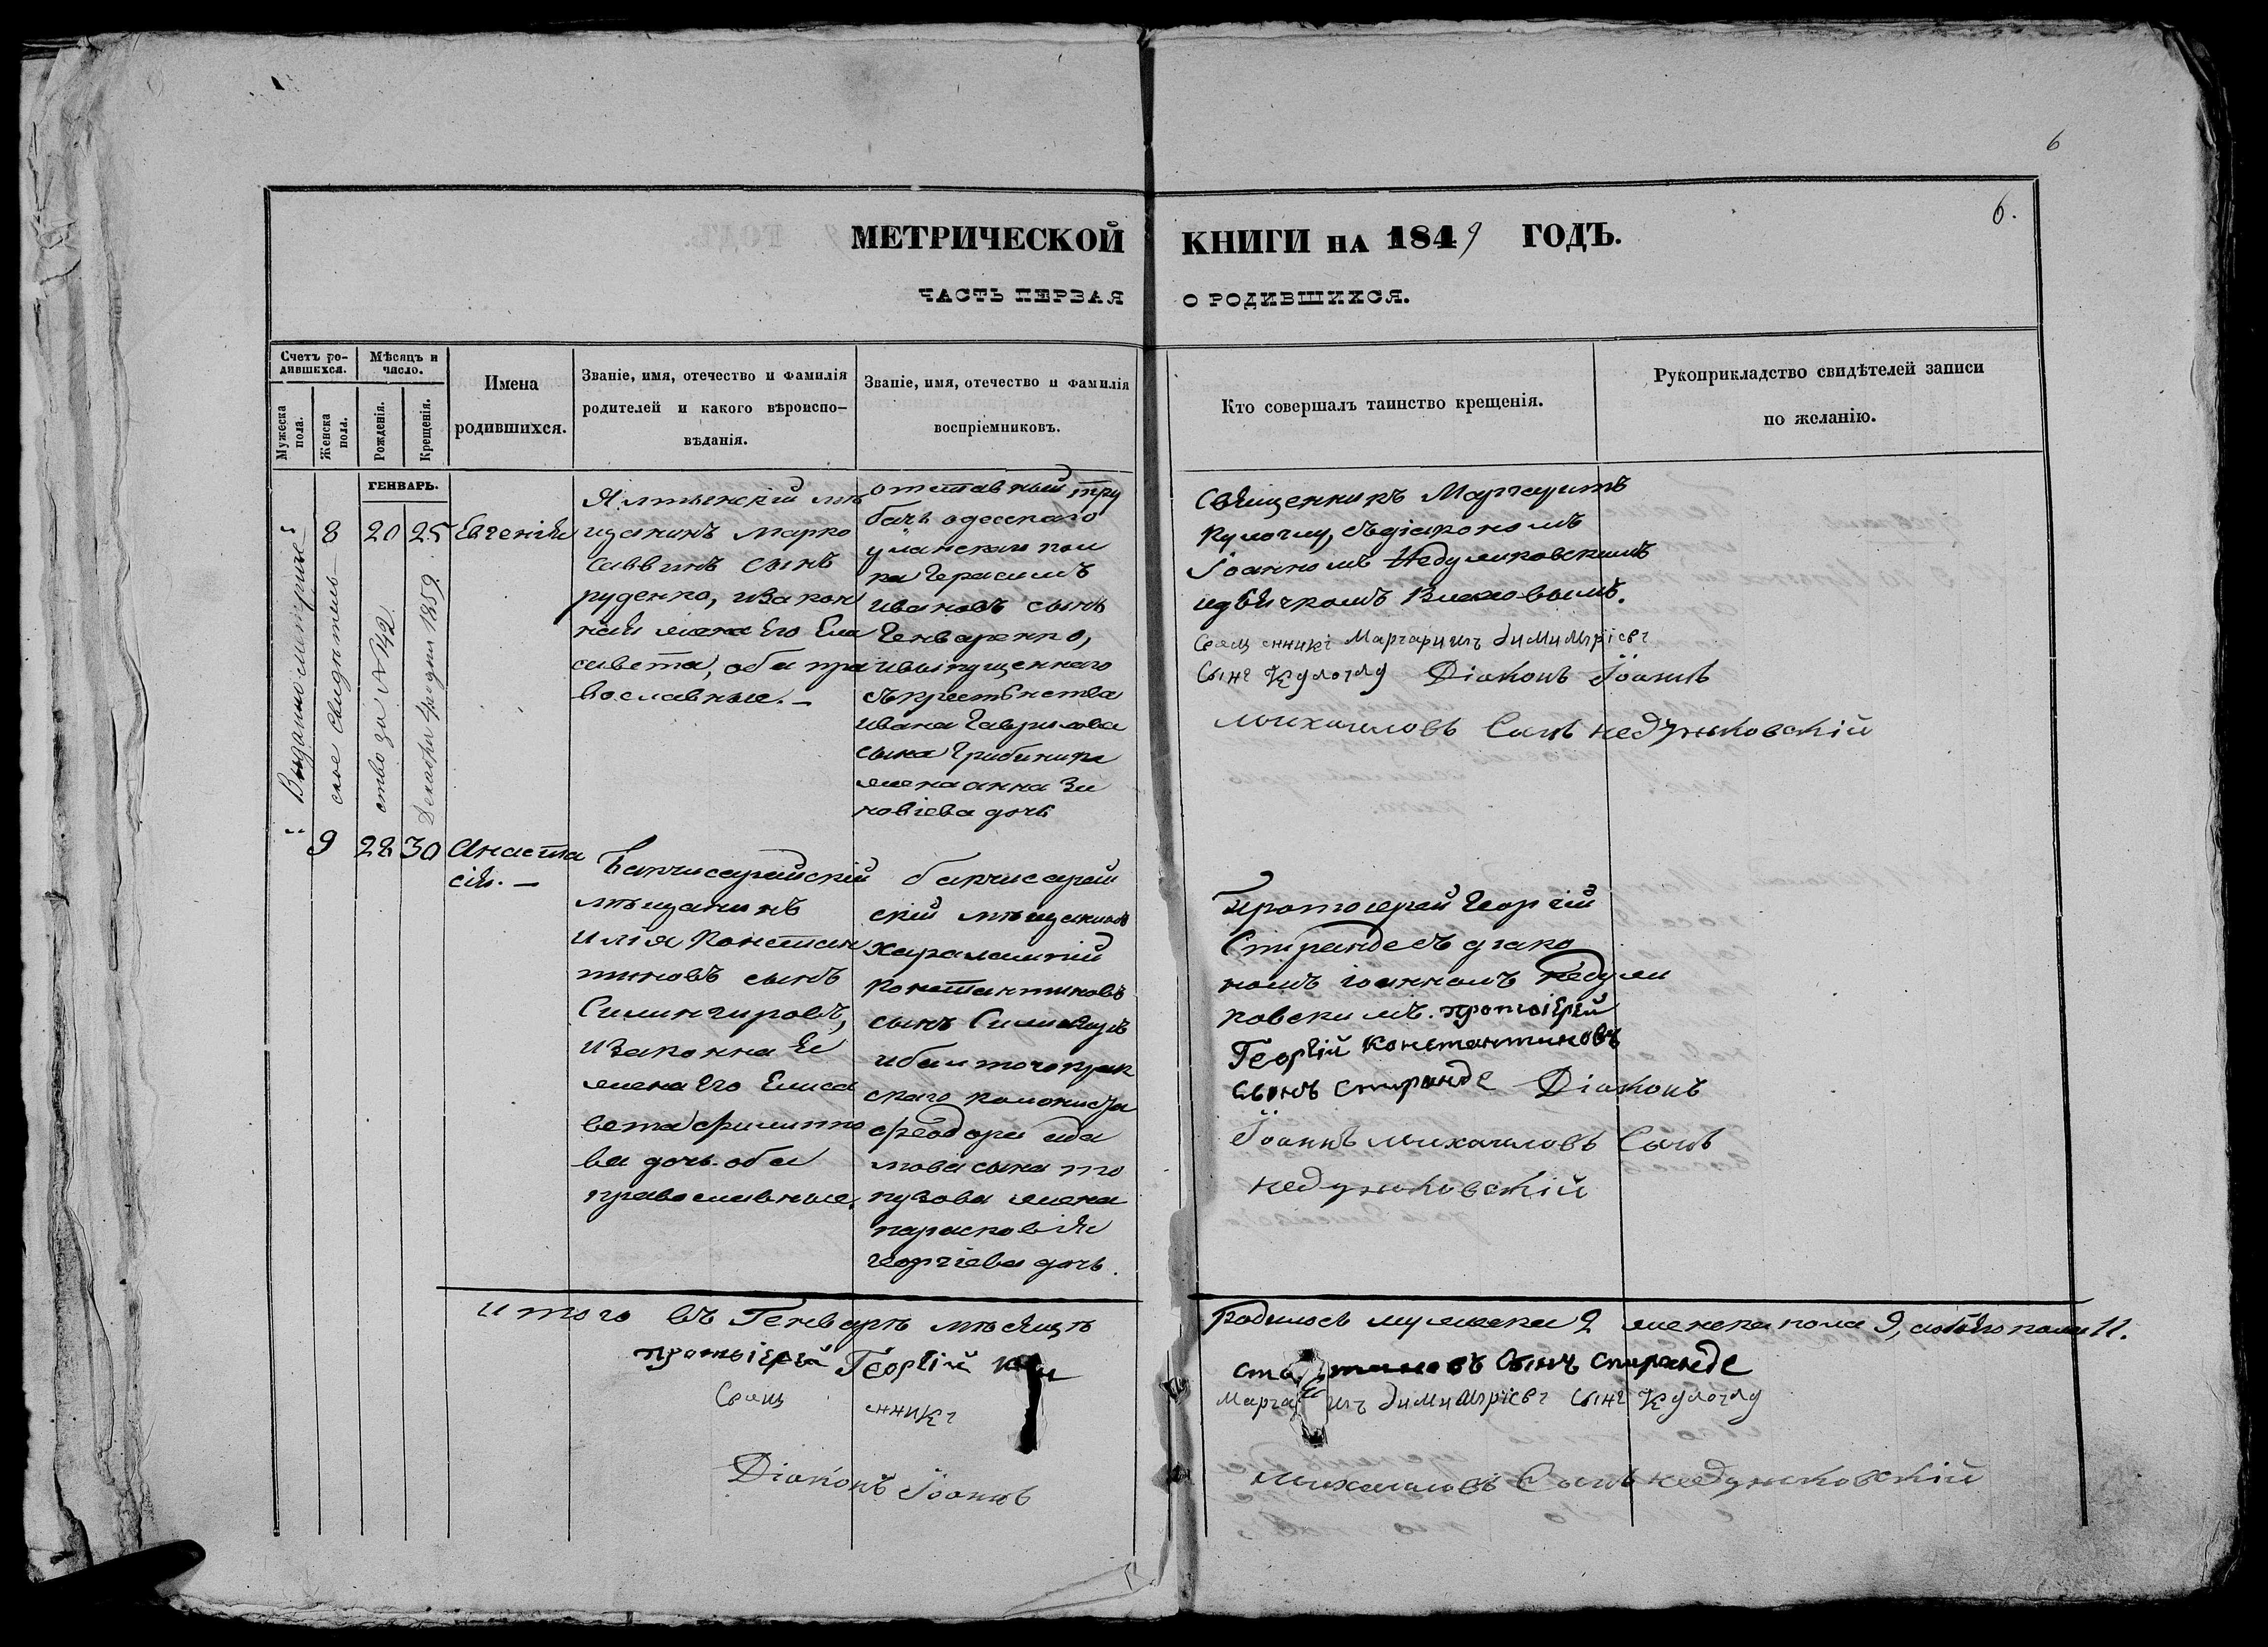 6
6.
МЕТРИЧЕСКОЙ КНИГИ НА 1849 ГОДЪ.
ЧАСТЬ ПЕРВАЯ О РОДИВШИХСЯ.
Счетъ ро-
дившихся.
Мужеска
пола.
Женска
пола.
Мѣсяцъ и
число.
Рожденія.
Крещенія.
Имена
родившихся.
Званіе, имя, отечество и фамилія
родителей и какого вѣроиспо-
вѣданія.
Званіе, имя, отечество и фамилія
воспріемниковъ.
Кто совершалъ таинство крещенія.
Рукоприкладство свидѣтелей записи
по желанію.
ГЕНВАРЬ.
8 20 25 Евгенія
Выдано метриче-
ское Свидѣтель-
ство за № 142
Декабря 4 родня 1859
Ялтинскій мѣ
щанинъ Марко
Саввинъ сынъ
руденко, изакон
ная жена Его Ели
савета, оба пра
вославные. –
отставный тру
бачъ одесскаго
уланскаго пол
ка Герасимъ
ивановъ сынъ
Генваренко,
ивыпущеннаго
съкрестьянства
ивана Гаврилова
сына Грибиника
жена анна Зи
новіева дочь
Священникъ Маргаритъ
Кулоглу, съдіакономъ
Іоанномъ Недулковскимъ
идьячкомъ Влаховымъ.
Священникъ Маргаритъ димитріевъ
Сынъ Кулоглу Діаконъ Іоаннъ
михаиловъ Сынъ недулковскій
9 28 30 Анаста
сія. –
Бакчисарайскій
мѣщанинъ
илія Констан
тиновъ сынъ
Силингировъ,
изаконная
жена его Елиса
вета филиппо
ва дочь. оба
православные.
бакчисарай
скій мѣщанинъ
харалампій
константиновъ
сынъ
ибалточокрак
скаго колониста
феодора ада
мова сына то
пузова жена
парасковія
георгіева дочь.
Протоіерей Георгій
Спиранде съ діако
номъ іоанномъ недул
ковскимъ. протоіерей
Георгій Константиновъ
сынъ Спиранде Діаконъ
Іоаннъ михаиловъ Сынъ
недулковскій
итого въ Генварѣ мѣсяцѣ Родилось мужеска 2 женска пола 9, обоего пола 11.
протоіерей Георгій Кон стантиновъ Сынъ Спиранде
Священникъ Маргаритъ димитріевъ Сынъ Кулоглу
Діаконъ Іоаннъ михаиловъ Сынъ недулковскій